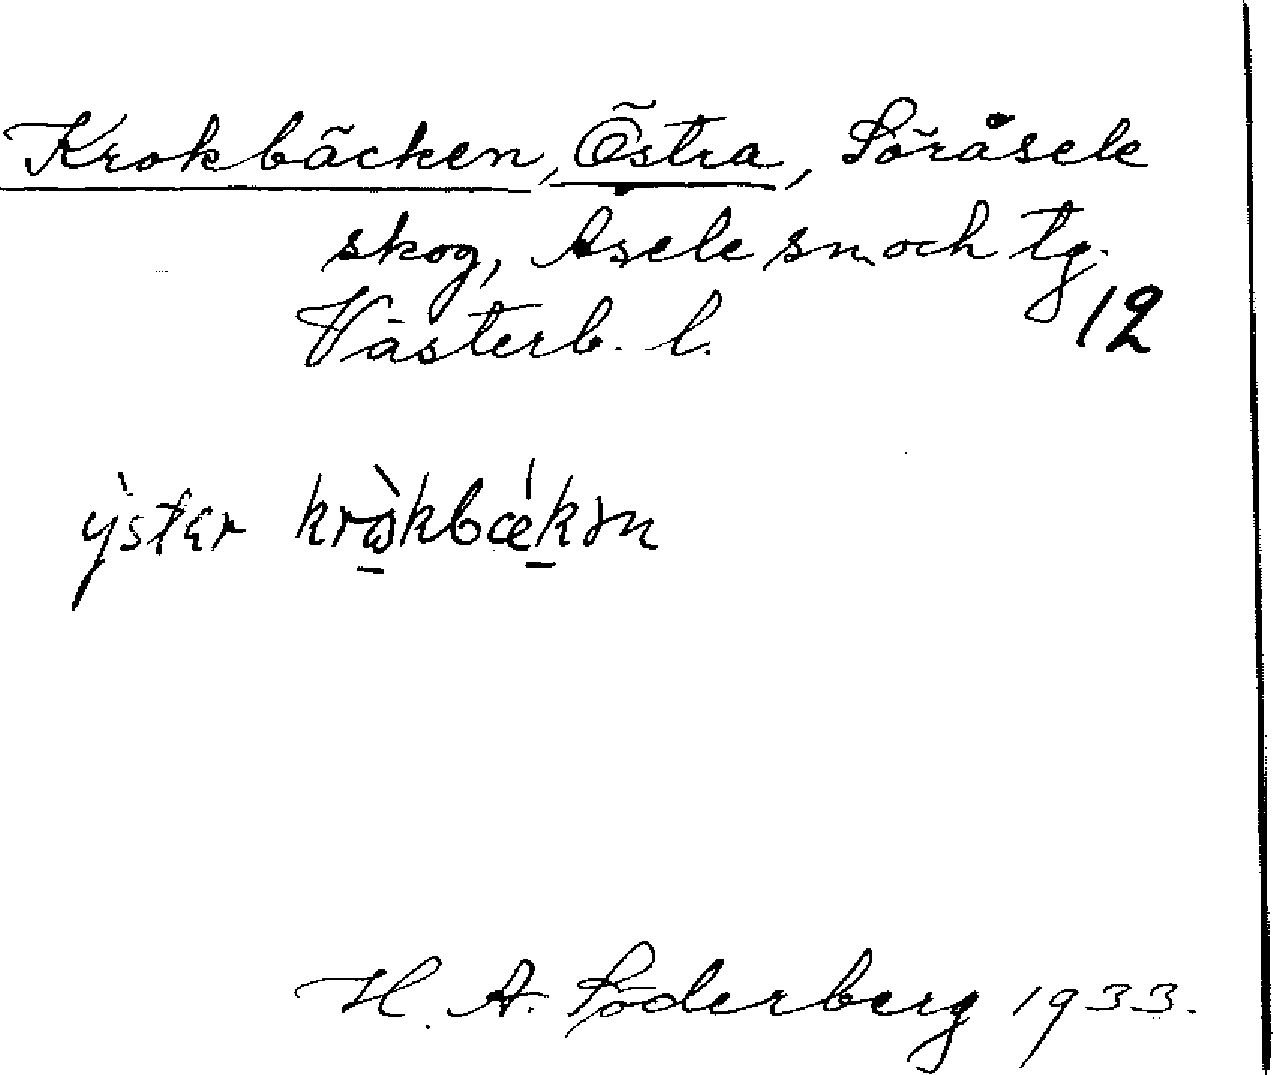 Krokbäcken, Östra, Söråsele
skog, Åsele sn och tg.
Västerb. l. 12
H. A. Söderberg 1933.